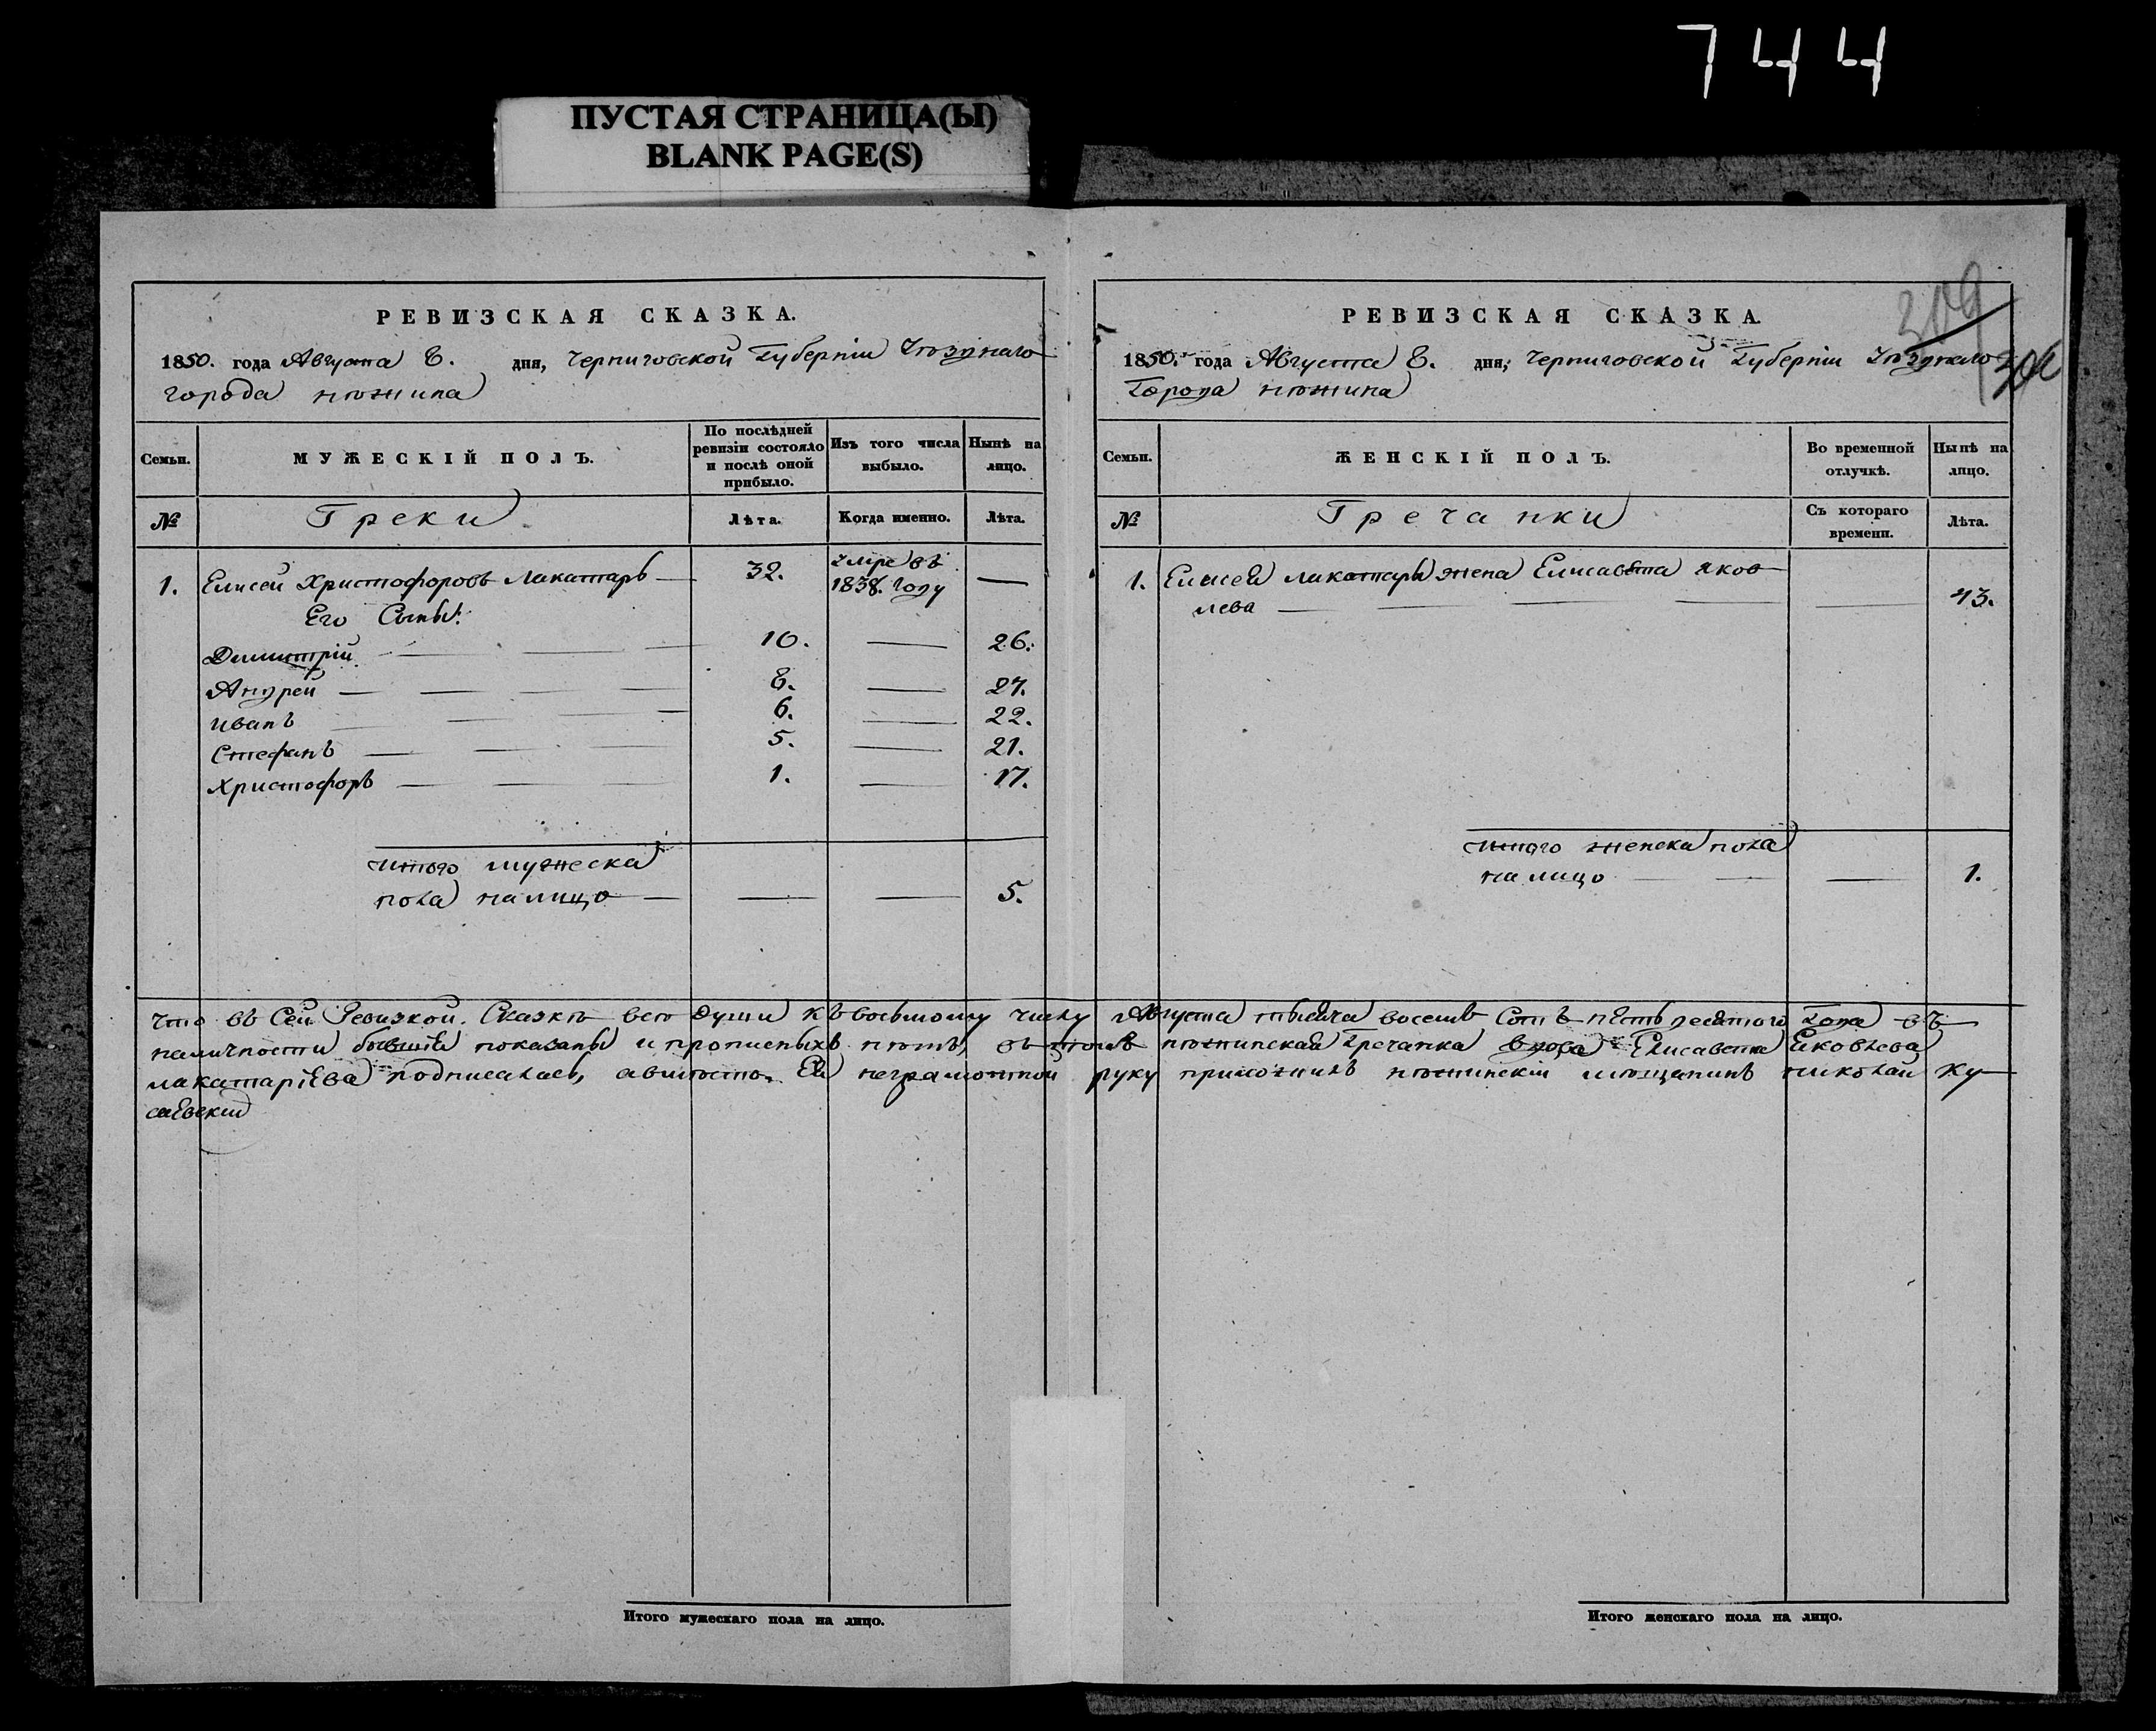 744
ПУСТАЯ СТРАНИЦА(Ы)
BLANK PAGE(S)
РЕВИЗСКАЯ СКАЗКА.
1850. года Августа 8. дня, Черниговской Губерніи Уѣзднаго
города нѣжина
Семьи.
МУЖЕСКІЙ ПОЛЪ.
По послѣдней
ревизіи состояло
и послѣ оной
прибыло.
Изъ того числа
выбыло.
Нынѣ на
лицо.
№
Греки
Лѣта.
Когда именно.
Лѣта.
1. Елисей Христофоровъ Лакатаръ — 32. Умре въ
1838. году —
Его Сыны:
Димитрій — 10. — 26.
Андрей — 8. — 24.
Иванъ — 6. — 22.
Стефанъ — 5. — 21.
Христофоръ — 1. — 17.
Итого мужеска
пола на лицо — 5.
РЕВИЗСКАЯ СКАЗКА.
309
304
1850. года Августа 8. дня, Черниговской Губерніи Уѣзднаго
Города нѣжина
Семьи.
ЖЕНСКІЙ ПОЛЪ.
Во временной
отлучкѣ.
Нынѣ на
лицо.
№
Гречанки
Съ котораго
времени.
Лѣта.
1. Елисея Лакатары жена Елисавѣта Яков
лева — 43.
Итого женска пола
на лицо — 1.
что въ Сей Ревизкой Сказкѣ все души къ восьмому числу Августа тысяча восемь Сотъ пѣтьдесятого Года въ
наличности бывшія показаны и прописныхъ нѣтъ, въ томъ нѣжинская Гречанка вдова Елисавета Яковлева
лакатаріева подписалась, авмѣсто Ея неграмотной руку приложилъ нѣжинскій мѣщанинъ николай Ку
саевскій
Итого мужескаго пола на лицо.
Итого женскаго пола на лицо.